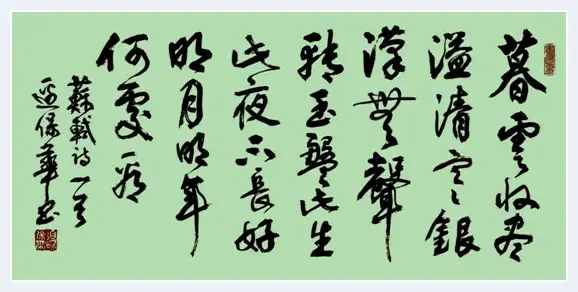 暮雲收尽
溢清寒銀
漢無聲
轉玉盤此生
此夜不長好
明月明年
何處看
蘇軾詩一首
保華书